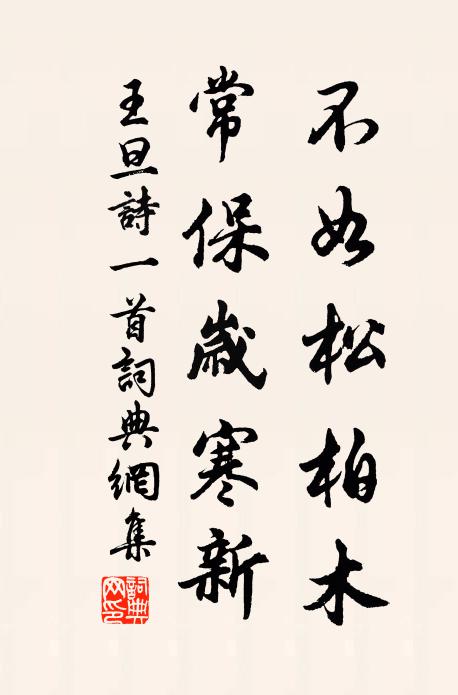 不如松柏木
常保歲寒新
王旦詩一首詞典網集
詞典网印